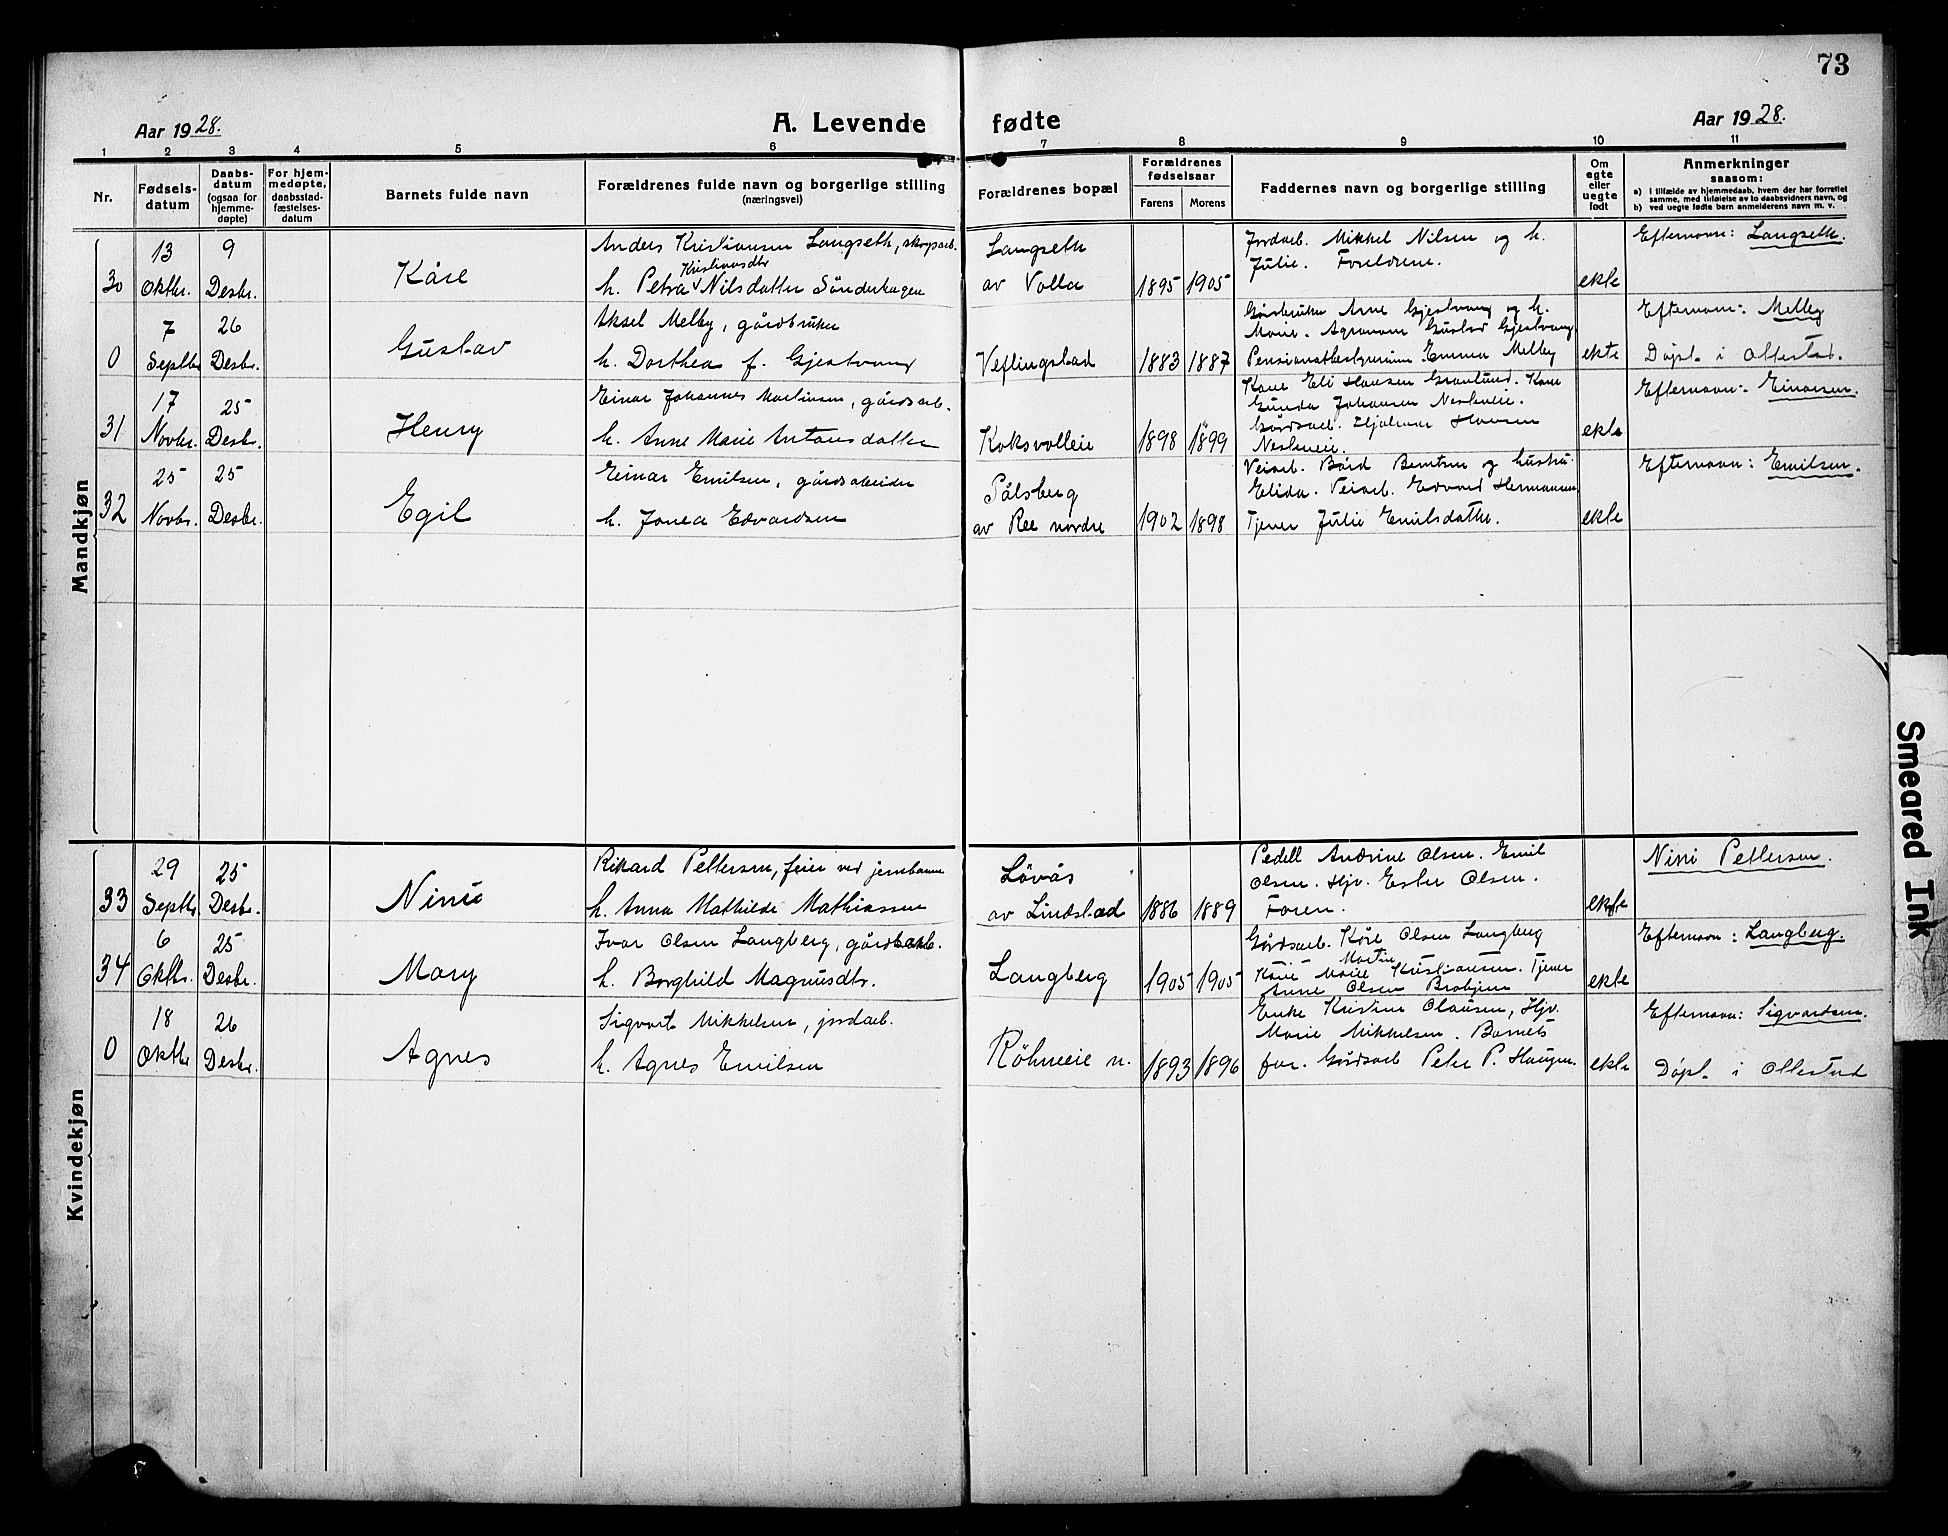 73
Aar 1928.
A. Levende fødte
Aar 1928.
1 2 3 4 5 6 7 8 9 10 11
Nr.
Fødsels-
datum
Daabs-
datum
(ogsaa for
hjemme-
døpte)
For hjem-
medøpte,
daabsstad-
fæstelses-
datum
Barnets fulde navn
Forældrenes fulde navn og borgerlige stilling
(næringsvei)
Forældrenes bopæl
Forældrenes
fødselsaar
Farens Morens
Faddernes navn og borgerlige stilling
Om
egte
eller
uegte
født
Anmerkninger
saasom:
a) i tilfælde av hjemmedaab, hvem der har forrettet
samme, med tilføielse av to daabsvidners navn, og
b) ved uegte fødte barn anmelderens navn m. v.
Mandkjøn
13 9 Anders Kristiansen Langseth, skogsarb. Langseth Jordarb. Mikkel Nilsen og h. Efternavn: Langseth.
Kristiansdtr Julie. Foreldrene.
30 Oktbr. Desbr. Kåre h. Petra Nilsdatter Sönderhagen av Volla 1895 1905 ekte
7 26 Aksel Melby, gårdbruker Gårdbruker Arne Gjestvang og h. Efternavn: Melby
Gustav Marie. Agronom Gustav Gjestvang
0 Septbr. Desbr. h. Dorthea f. Gjestvang Veflingstad 1883 1887 Pensionatbestyrerinne Emma Melby ekte Döpt i Ottestad.
17 25 Einar Johannes Martinsen, gårdsarb. Kone Eli Hansen Granlund. Kone Efternavn: Einarsen.
Gunda Johansen Neskveie.
31 Novbr. Desbr. Henry h. Anne Marie Antonsdatter Koksvolleie 1898 1899 Gårdsarb. Hjalmar Hansen ekte
Neskveie.
25 25 Einar Emilsen, gårdsarbeider Pålsberg Veiarb. Bård Berntsen og hustru Efternavn: Emilsen.
Elida. Veiarb. Edvard Hermansen
32 Novbr. Desbr. Egil h. Jonea Edvardsen av Ree nordre 1902 1898 Tjener Julie Emilsdatter. ekte
Kvindekjøn
29 25 Rikard Pettersen, feier ved jernbanen Lövås Pedell Andrine Olsen. Emil Nini Pettersen.
Olsen. Hjv. Ester Olsen.
33 Septbr. Desbr. Nini h. Anna Mathilde Mathiassen av Lindstad 1886 1889 Faren. ekte
6 25 Ivar Olsen Langberg, gårdbarb. Gårdsarb. Kåre Olsen Langberg Efternavn: Langberg.
Martin
34 Oktbr. Desbr. Mary h. Borghild Magnusdtr. Langberg 1905 1905 Kåre Marie Kristiansen. Tjener ekte
Anne Olsen
18 26 Sigvart Mikkelsen, jordarb. Enke Kristine Clausen, Hjv. Efternavn: Sigvartsen.
Marie Mikkelsen. Barnets
0 Oktbr Desbr. Agnes h. Agnes Emilsen Röhneeie n. 1893 1896 far. Gårdsarb Peter P. Haugen. ekte Döpt i Ottestad
Smeared Ink